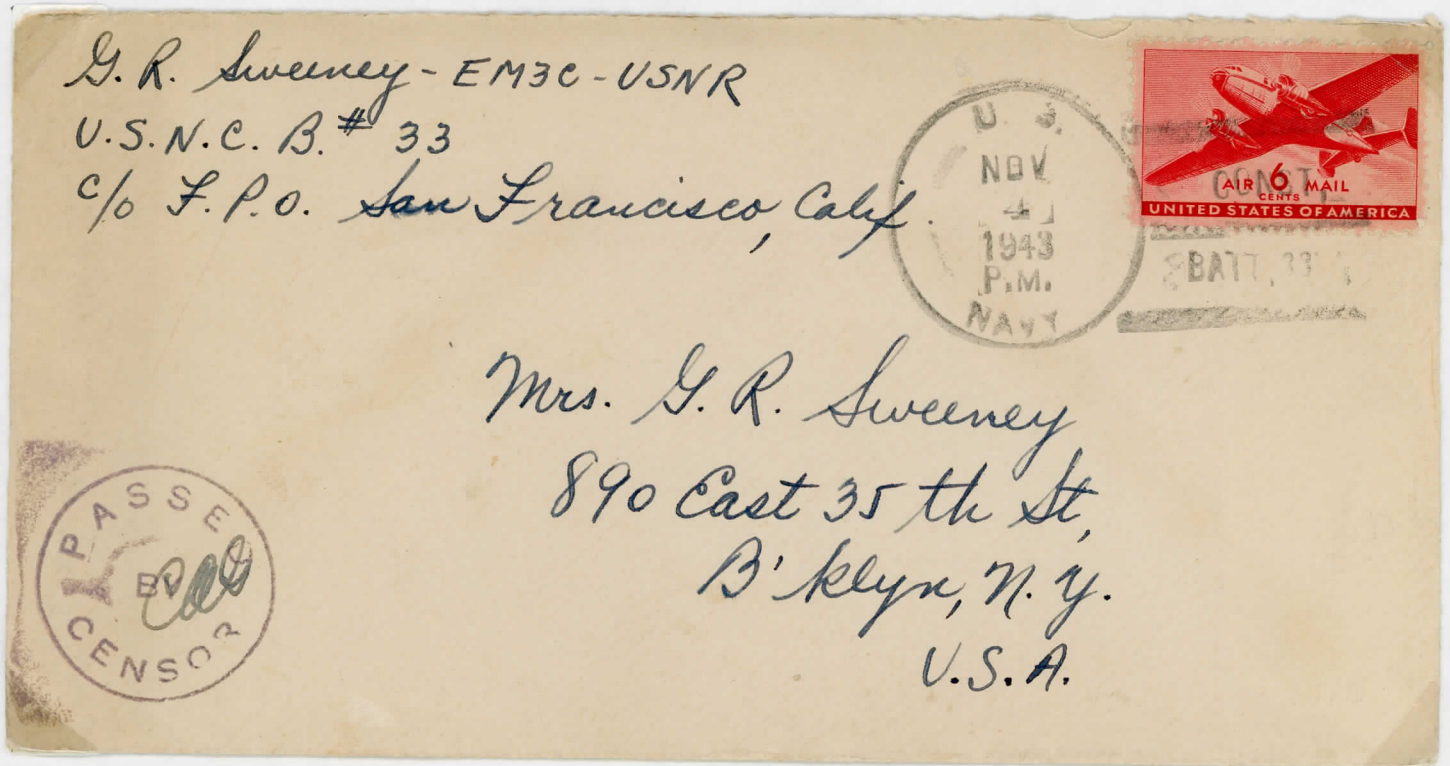 G. R. Sweeney - EM3C - USNR
U.S.N.C. B. # 33
c/o F.P.O. San Francisco, Calif.
U. S.
NOV
4
1943
P.M.
NAVY
AIR 6 MAIL
CENTS
UNITED STATES OF AMERICA
CONST.
BATT. 33
Mrs. G. R. Sweeney
890 East 35 th St,
B'klyn, N. Y.
U.S.A.
PASSED
BY
CENSOR